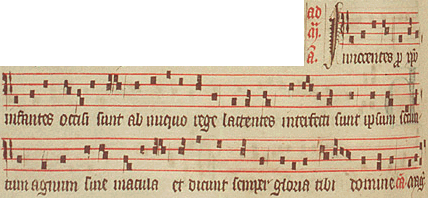 ad
Innocentes p xpo
infantes occisi sunt ab iniquo rege lactentes interfecti sunt ipsum secun
tum agnum sine macula et dicunt semper gloria tibi domine